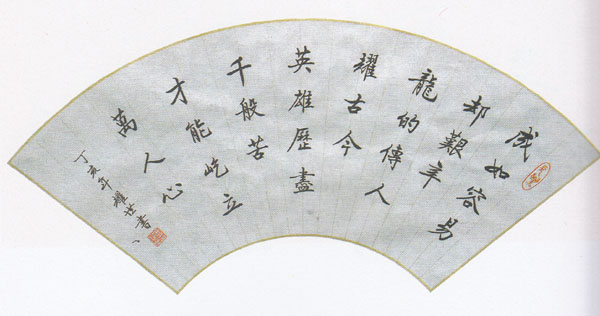 成如容易
却艱辛
龍的傳人
耀古今
英雄歷盡
千般苦
才能屹立
萬人心
丁亥年耀書